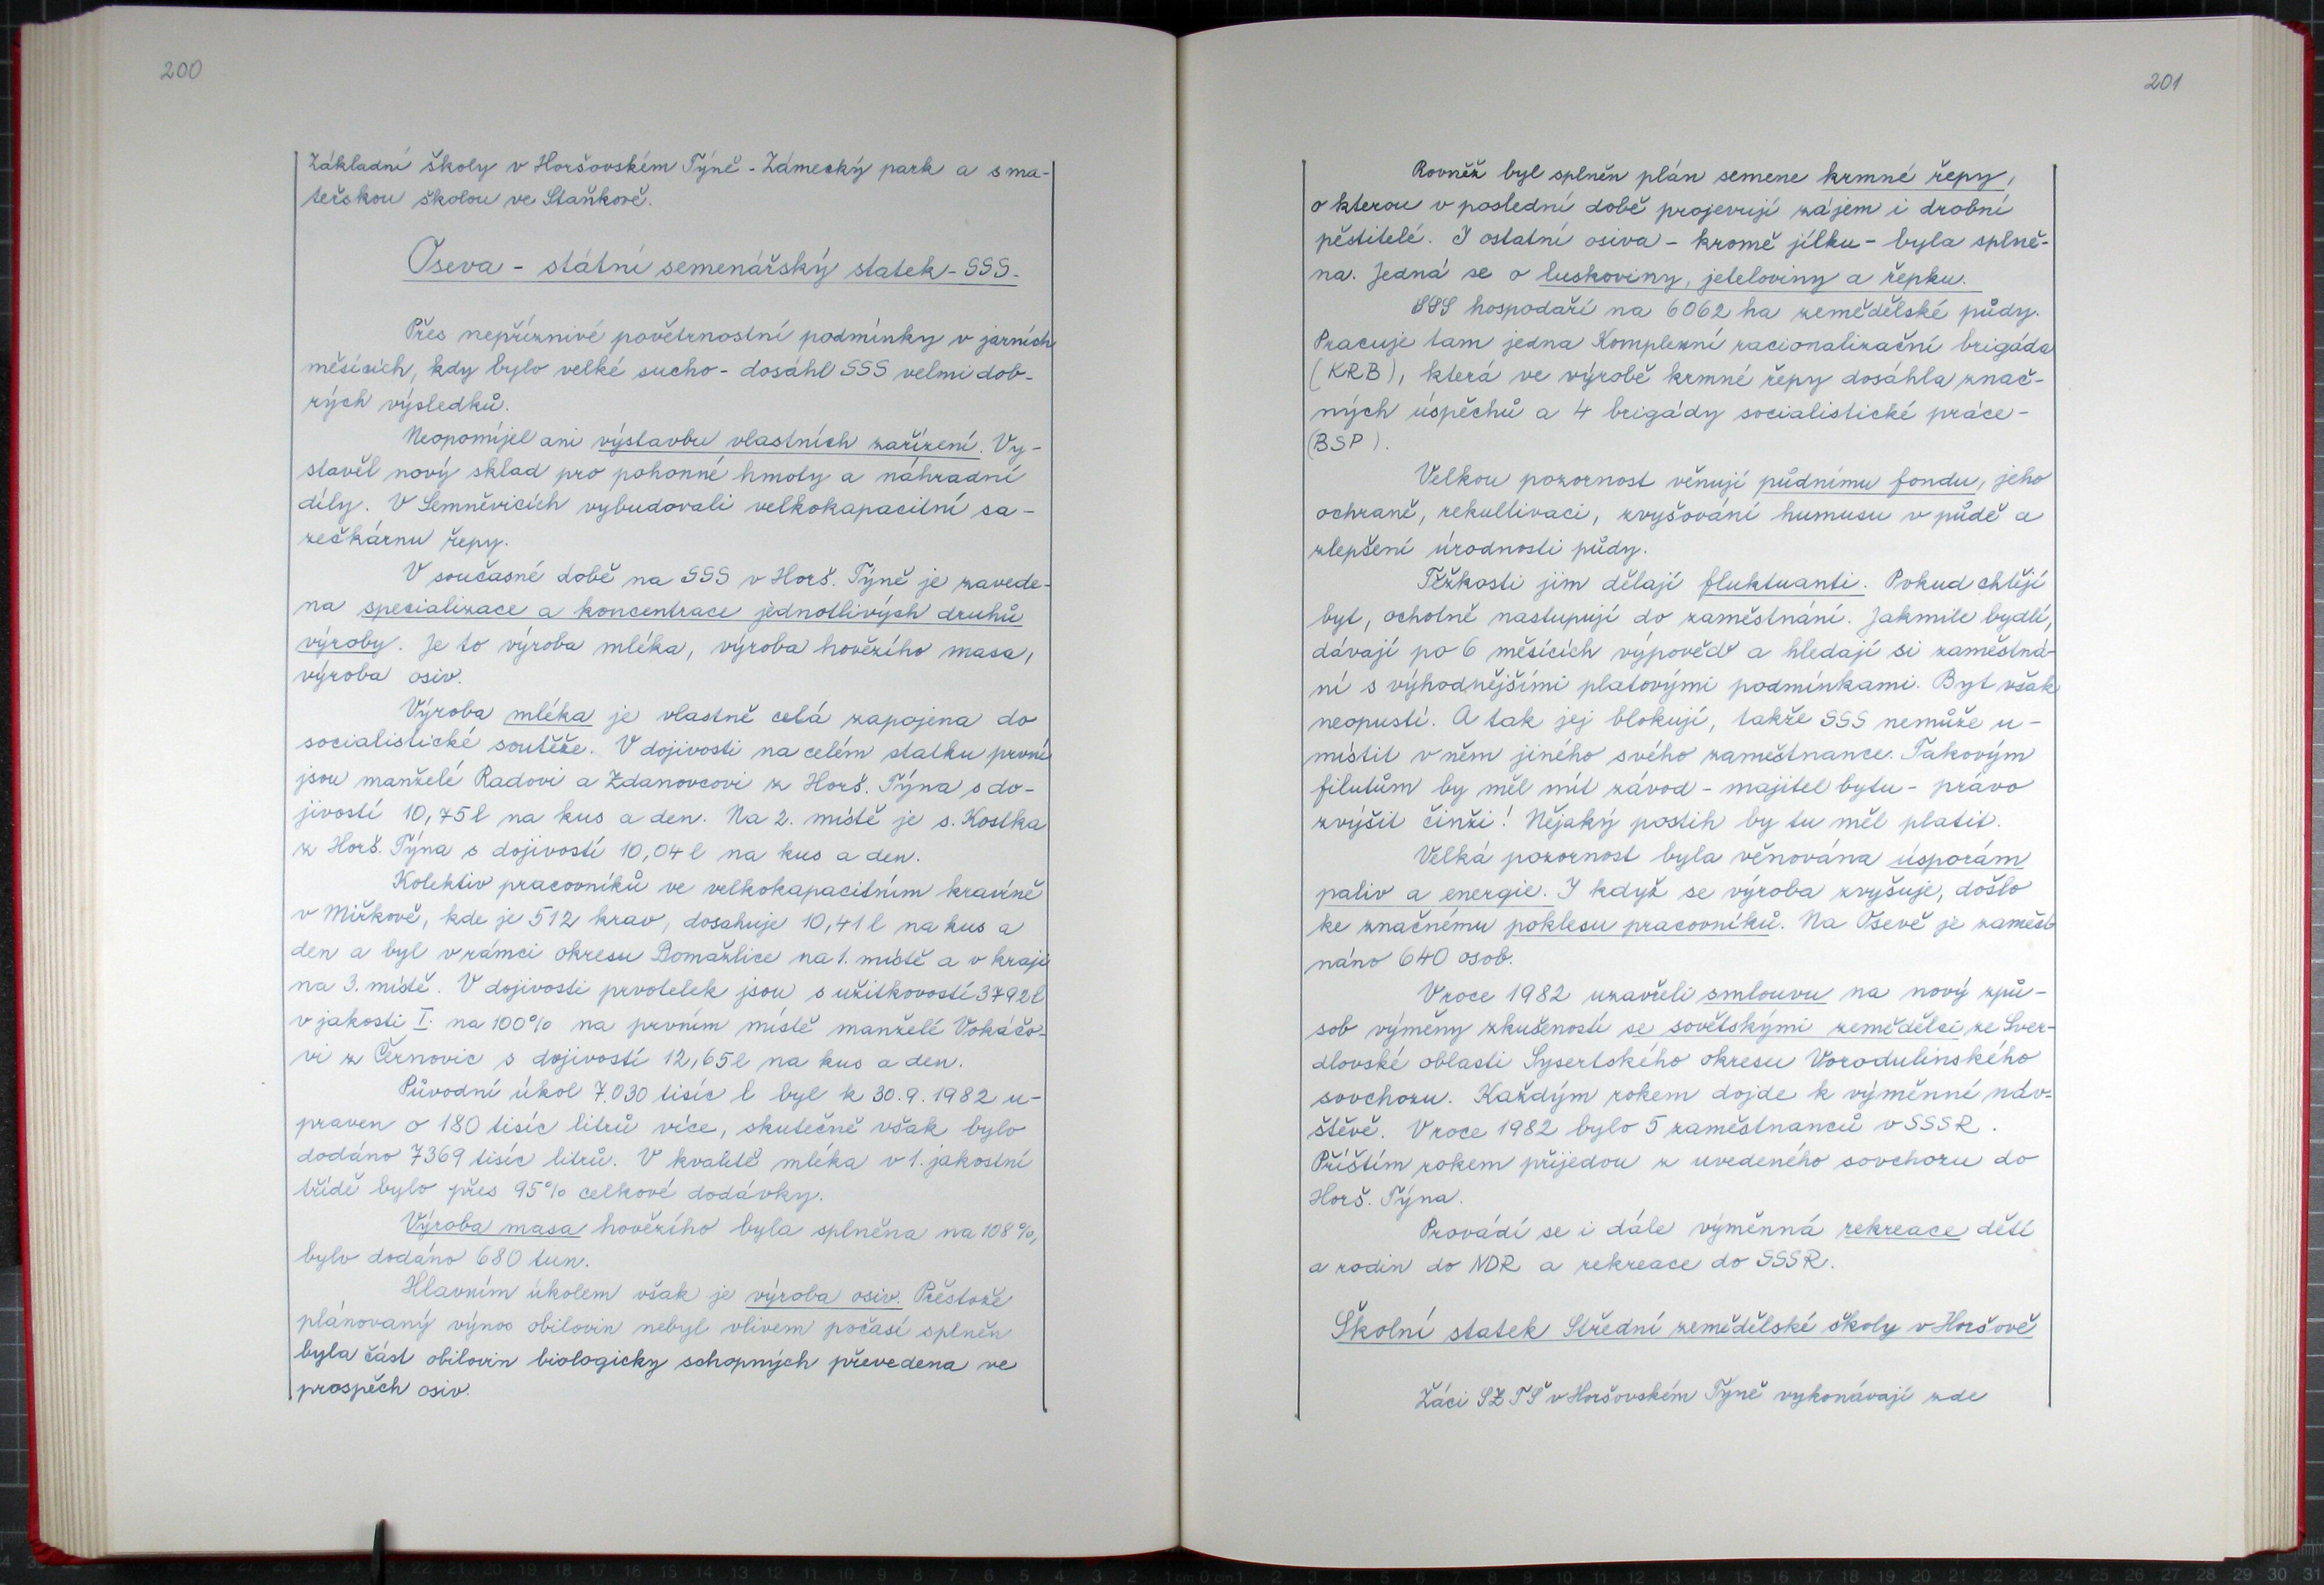 200
Základní školy v Horšovském Týně - Zámecký park a s ma-
teřskou školou ve Staňkově.
Oseva - státní semenářský statek - SSS -
Přes nepříznivé povětrnostní podmínky v jarních
měsících, kdy bylo velké sucho - dosáhl SSS velmi dob-
rých výsledků.
Neopomíjel ani výstavbu vlastních zařízení. Vy-
stavěl nový sklad pro pohonné hmoty a náhradní
díly. V Semněvicích vybudovali velkokapacitní sa-
zečkárnu řepy.
V současné době na SSS v Horš. Týně je zavede-
na specializace a koncentrace jednotlivých druhů
výroby. Je to výroba mléka, výroba hovězího masa,
výroba osiv.
Výroba mléka je vlastně celá zapojena do
socialistické soutěže. V dojivosti na celém statku první
jsou manželé Radovi a Zdanovcovi z Horš. Týna s do-
jivostí 10,75 l na kus a den. Na 2. místě je s. Kostka
z Horš. Týna s dojivostí 10,04 l na kus a den.
Kolektiv pracovníků ve velkokapacitním kravíně
v Mířkově, kde je 512 krav, dosahuje 10,41 l na kus a
den a byl v rámci okresu Domažlice na 1. místě a v kraji
na 3. místě. V dojivosti prvotelek jsou s užitkovostí 3792 l
v jakosti I. na 100% na prvním místě manželé Vokáčo-
vi z Černovic s dojivostí 12,65 l na kus a den.
Původní úkol 7.030 tisíc l byl k 30.9.1982 u-
praven o 180 tisíc litrů více, skutečně však bylo
dodáno 7369 tisíc litrů. V kvalitě mléka v 1. jakostní
třídě bylo přes 95% celkové dodávky.
Výroba masa hovězího byla splněna na 108 %,
bylo dodáno 680 tun.
Hlavním úkolem však je výroba osiv. Přestože
plánovaný výnos obilovin nebyl vlivem počasí splněn
byla část obilovin biologicky schopných převedena ve
prospěch osiv.
201
Rovněž byl splněn plán semene krmné řepy,
o kterou v poslední době projevují zájem i drobní
pěstitelé. I ostatní osiva - kromě jílku - byla splně-
na. Jedná se o luskoviny, jeteloviny a řepku.
SSS hospodaří na 6062 ha zemědělské půdy.
Pracuje tam jedna Komplexní racionalizační brigáda
(KRB), která ve výrobě krmné řepy dosáhla znač-
ných úspěchů a 4 brigády socialistické práce -
(BSP).
Velkou pozornost věnují půdnímu fondu, jeho
ochraně, rekultivaci, zvyšování humusu v půdě a
zlepšení úrodnosti půdy.
Těžkosti jim dělají fluktuanti. Pokud chtějí
byt, ochotně nastupují do zaměstnání. Jakmile bydlí,
dávají po 6 měsících výpověď a hledají si zaměstná-
ní s výhodnějšími platovými podmínkami. Byt však
neopustí. A tak jej blokují, takže SSS nemůže u-
místit v něm jiného svého zaměstnance. Takovým
filutům by měl mít závod - majitel bytu - právo
zvýšit činži! Nějaký postih by tu měl platit.
Velká pozornost byla věnována úsporám
paliv a energie. I když se výroba zvyšuje, došlo
ke značnému poklesu pracovníků. Na Osevě je zaměst
náno 640 osob.
V roce 1982 uzavřeli smlouvu na nový způ-
sob výměny zkušeností se sovětskými zemědělci ze Sver-
dlovské oblasti Sysertského okresu Vorodulinského
sovchozu. Každým rokem dojde k výměnné náv-
štěvě. V roce 1982 bylo 5 zaměstnanců v SSSR.
Příštím rokem přijedou z uvedeného sovchozu do
Horš. Týna.
Provádí se i dále výměnná rekreace dětí
a rodin do NDR a rekreace do SSSR.
Školní statek Střední zemědělské školy v Horšově
Žáci SZTŠ v Horšovském Týně vykonávají zde